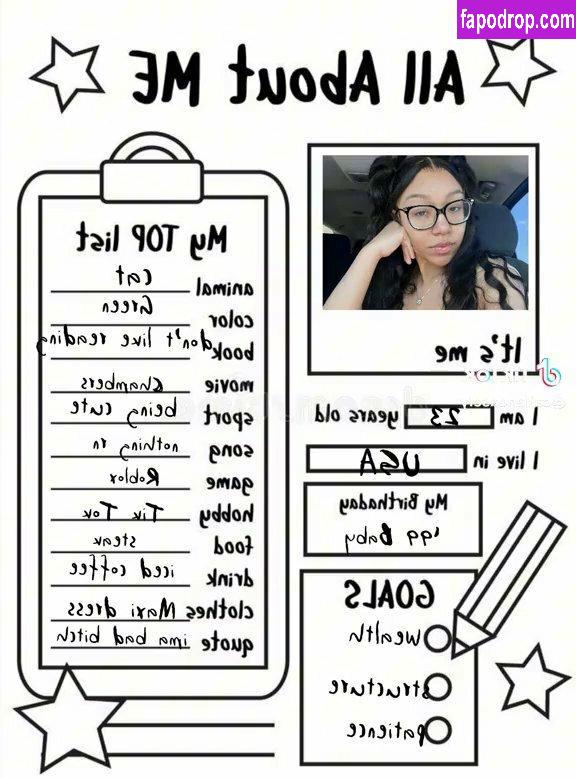 fapodrop.com
All About ME
My TOP list
animal cat
color Green
book don't like reading
movie Chambers
sport being cute
song nothing rn
game Roblox
hobby Tik Tok
food steak
drink iced coffee
clothes Maxi dress
quote ima bad bitch
It's me
I am 23 years old
I live in USA
My Birthaday
'99 Baby
GOALS
wealth
structure
patience